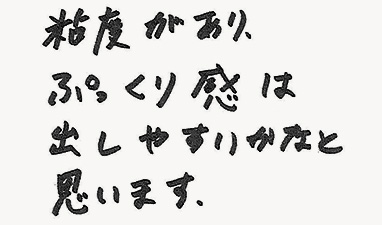 粘度があり、
ぷっくり感は
出しやすいかなと
思います.